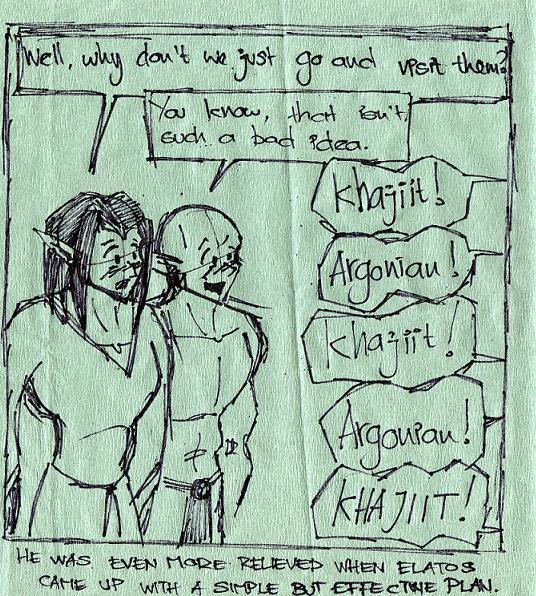 Well, why don't we just go and visit them?
You know, that isn't
such a bad idea.
Khajiit!
Argonian!
Khajiit!
Argonian!
KHAJIIT!
HE WAS EVEN MORE RELIEVED WHEN ELATOS
CAME UP WITH A SIMPLE BUT EFFECTIVE PLAN.